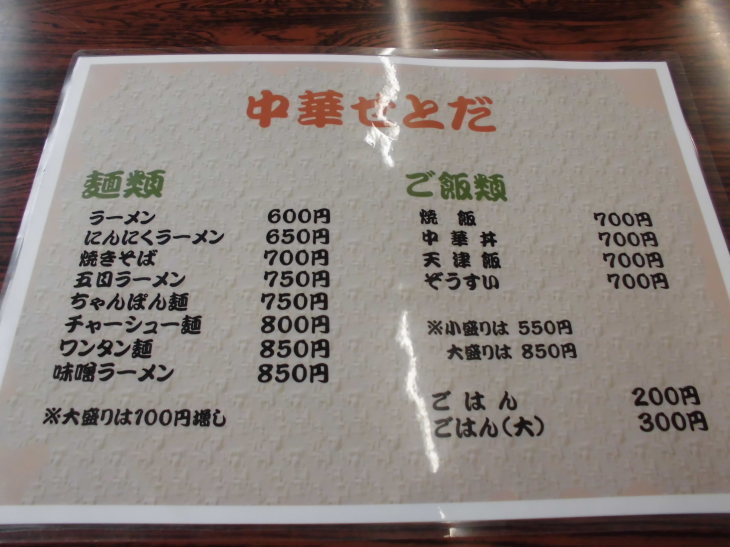 中華せとだ
麺類
ラーメン 600円
にんにくラーメン 650円
焼きそば 700円
五目ラーメン 750円
ちゃんぽん麺 750円
チャーシュー麺 800円
ワンタン麺 850円
味噌ラーメン 850円
※大盛りは100円増し
ご飯類
焼飯 700円
中華丼 700円
天津飯 700円
ぞうすい 700円
※小盛りは 550円
大盛りは 850円
ごはん 200円
ごはん(大) 300円